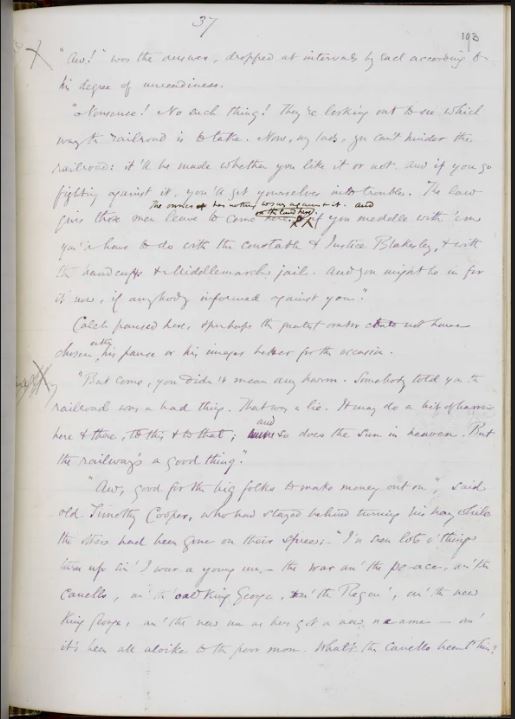 37
193
"Aw!" was the answer, dropped at intervals by each according to
his degree of unreadiness.
"Nonsense! No such thing! They're looking out to see which
way the railroad is to take. Now, my lads, you can't hinder the
railroad: it'll be made whether you like it or not. And if you go
fighting against it, you'll get yourselves into trouble. The law
The owner has nothing to say against it. and
gives those men leave to come here on the land here. if you meddle with 'em
you'll have to do with the constable & Justice Blakesley, & with
the handcuffs & Middlemarch jail. And you might be in for
it now, if anybody informed against you."
Caleb paused here, & perhaps the greatest orator could not have
chosen either his pause or his images better for the occasion.
"But come, you didn't mean any harm. Somebody told you the
railroad was a bad thing. That was a lie. It may do a bit of harm
here & there, to this & to that; and so does the sun in heaven. But
the railway's a good thing."
"Aw, good for the big folks to make money out on", said
old Timothy Cooper, who had stayed behind turning his hay while
the others had been gone on their spree: - "I'n seen lots o' things
turn up sin' I war a young un, - the war an' the pe-ace, an' the
canells, an' th' oald King George, an' the Regen', an' the new
King George, an' the new un as has got a new ne-ame - an'
it's been all aloike to the poor mon. What's the canells been t' him?